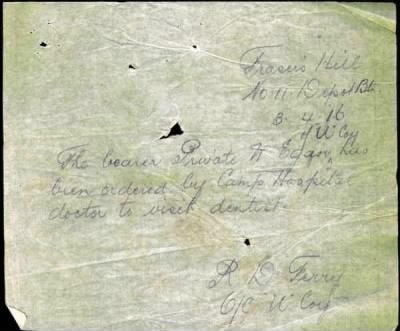 Frasers Hill
No 11 Depot Btn
3. 4. 16
of W Coy
The bearer Private W Egan, has
been ordered by Camp Hospital
doctor to visit dentist.
R D Ferry
O/C W Coy